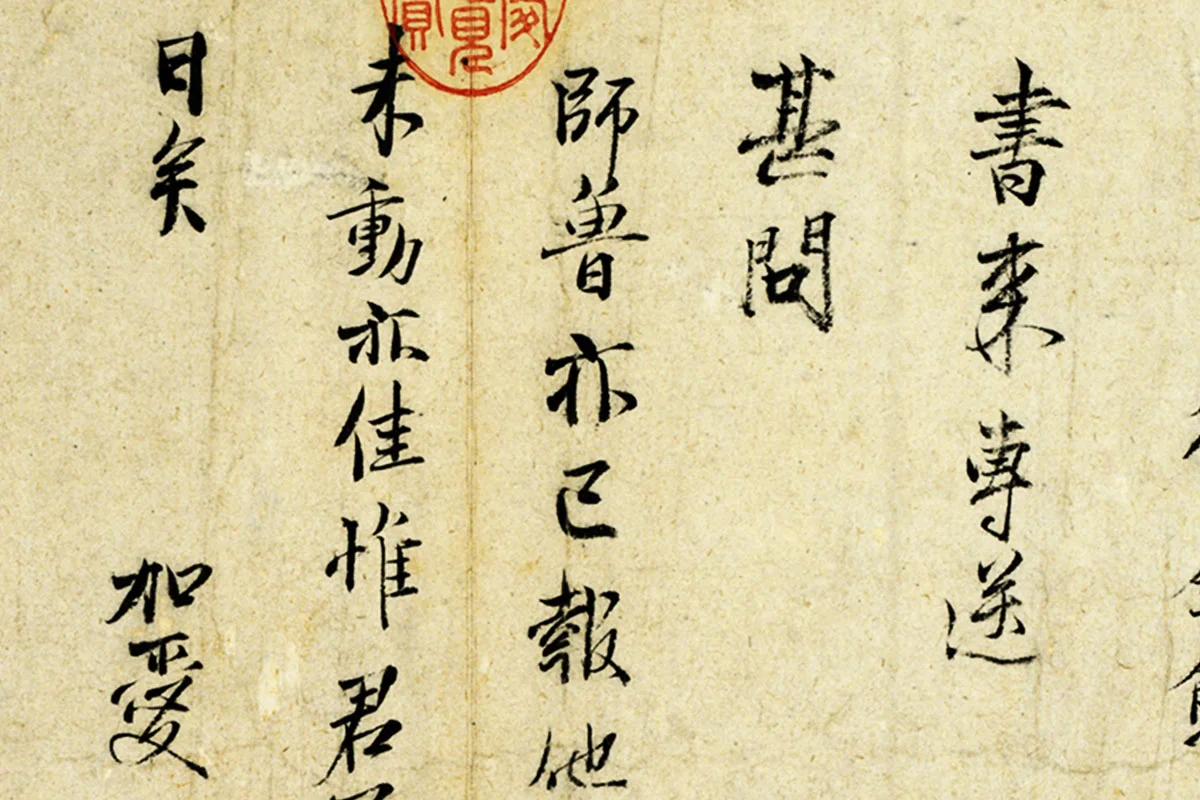 書来専送
甚問
師魯亦已報他
未動亦佳惟君
日矣 加愛